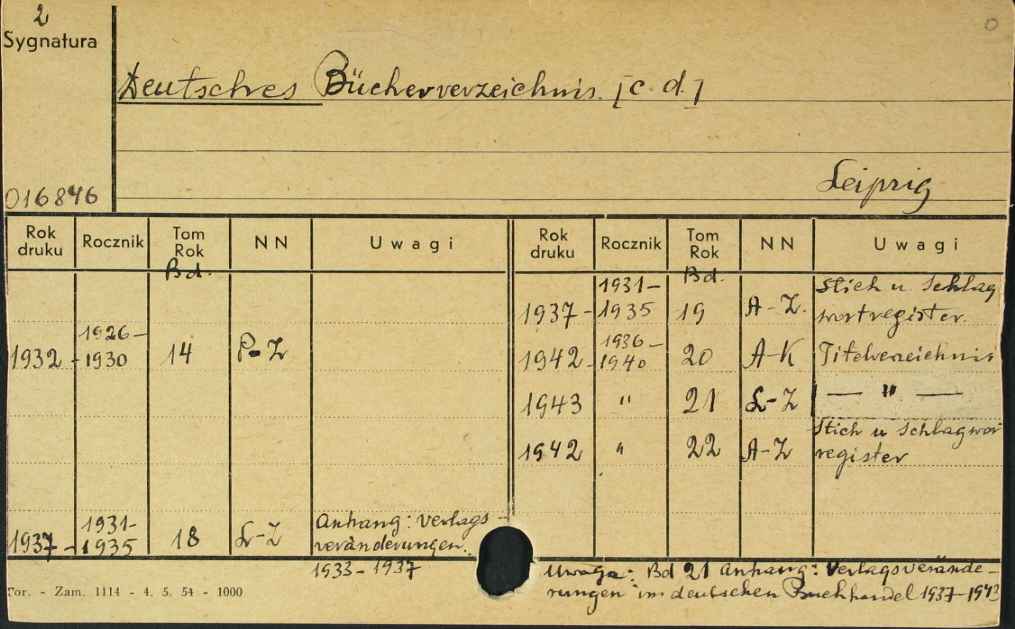 2
Sygnatura
Deutsches Bücherverzeichnis. [c.d.]
Leipzig
016846
Rok druku Rocznik Tom Rok NN Uwagi Rok druku Rocznik Tom Rok NN Uwagi
Bd. Bd.
1937 - 1931-1935 19 A-Z. Stich u. Schlag
wortregister.
1932 - 1926-1930 14 P-Z 1942 - 1936-1940 20 A-K Titelverzeichnis
1943 " 21 L-Z — " —
1942 " 22 A-Z Stich u Schlagwor
register
1937 - 1931-1935 18 L-Z Anhang: Verlags-
veränderungen.
1933-1937
Uwaga: Bd 21 Anhang: Verlagsverände-
rungen im deutschen Buchhandel 1937-1943
Tor. - Zam. 1114 - 4. 5. 54 - 1000